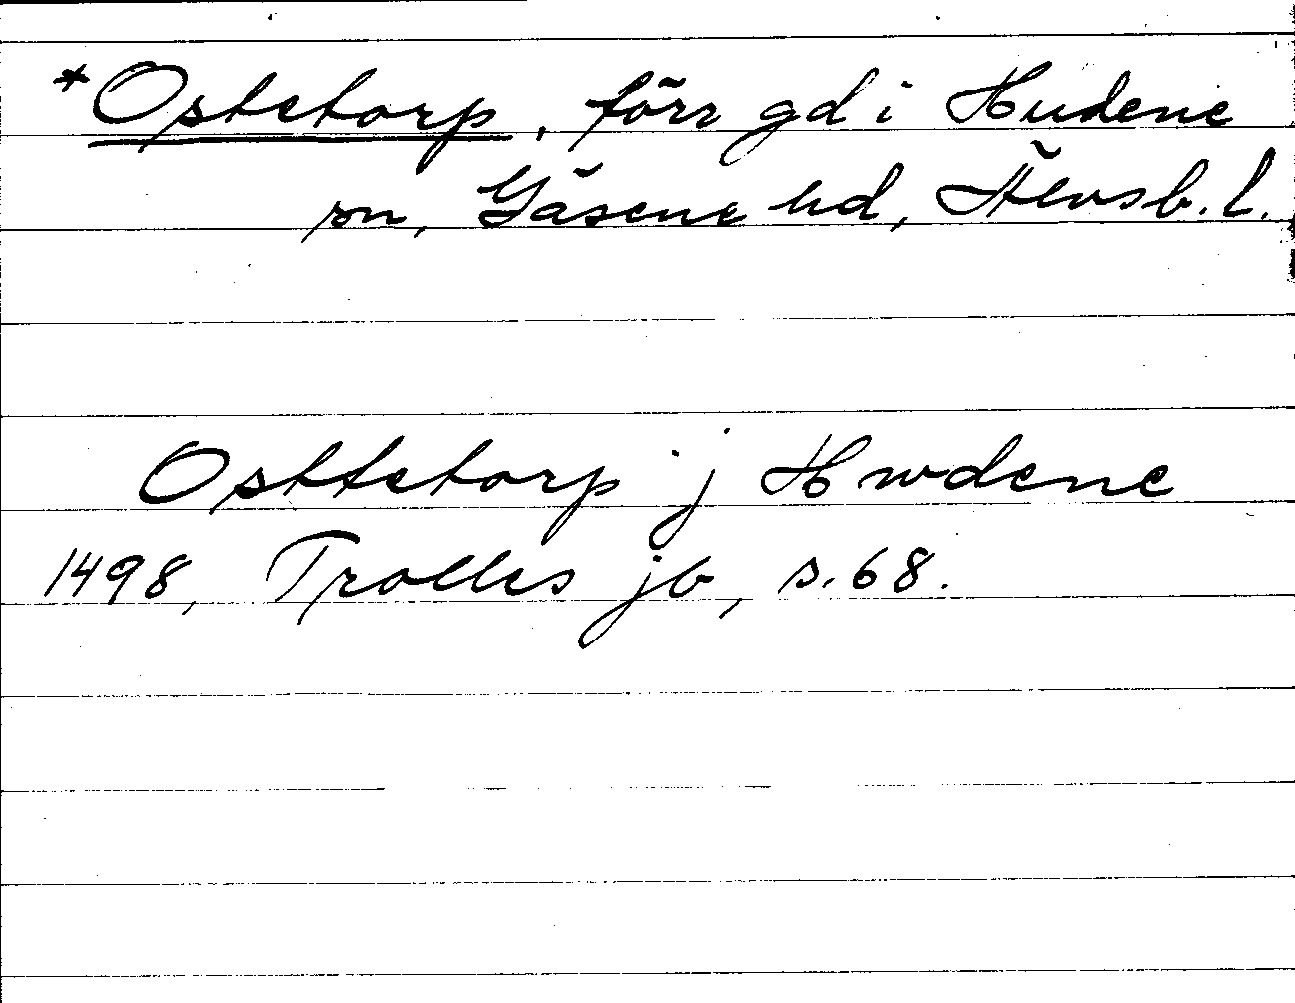 *Ostetorp, förr gd i Hudene
sn, Gäsene hd, Älvsb. l.
Osttetorp j Hwdene
1498, Trolles jb, s. 68.